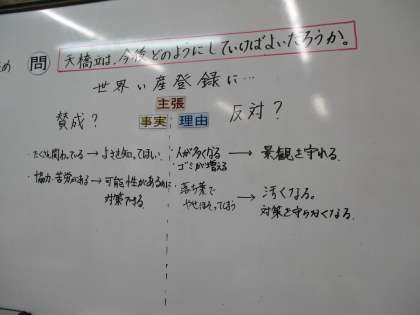 め 問 天橋立は、今後どのようにしていけばよいだろうか。
世界い産登録に…
主張
賛成？ 事実 理由 反対？
・たくさん関わっている → よさを知ってほしい。
・協力・苦労がある → 可能性があるために
対策できる
・人が多くなる → 景観を守れる。
・ゴミが増える
・落ち葉で → 汚くなる。
やせほそってしまう 対策を守らなくなる。